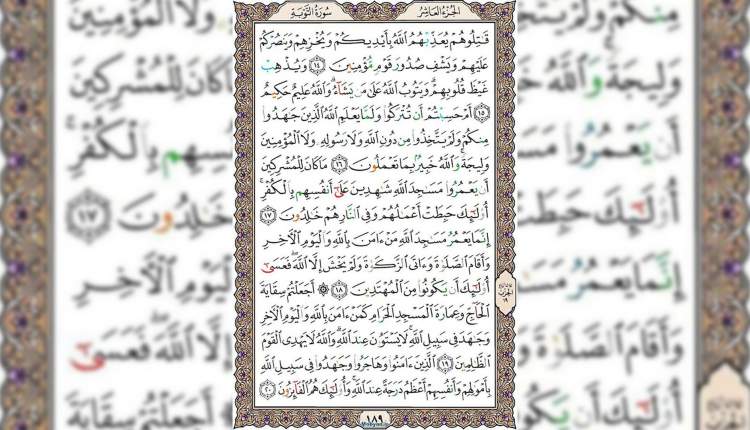 الجزء العاشر
سورة التوبة
قَٰتِلُوهُمْ يُعَذِّبْهُمُ ٱللَّهُ بِأَيْدِيكُمْ وَيُخْزِهِمْ وَيَنصُرْكُمْ
عَلَيْهِمْ وَيَشْفِ صُدُورَ قَوْمٍ مُّؤْمِنِينَ ١٤ وَيُذْهِبْ
غَيْظَ قُلُوبِهِمْ وَيَتُوبُ ٱللَّهُ عَلَىٰ مَن يَشَآءُ وَٱللَّهُ عَلِيمٌ حَكِيمٌ
١٥ أَمْ حَسِبْتُمْ أَن تُتْرَكُوا۟ وَلَمَّا يَعْلَمِ ٱللَّهُ ٱلَّذِينَ جَٰهَدُوا۟
مِنكُمْ وَلَمْ يَتَّخِذُوا۟ مِن دُونِ ٱللَّهِ وَلَا رَسُولِهِۦ وَلَا ٱلْمُؤْمِنِينَ
وَلِيجَةً وَٱللَّهُ خَبِيرٌۢ بِمَا تَعْمَلُونَ ١٦ مَا كَانَ لِلْمُشْرِكِينَ
أَن يَعْمُرُوا۟ مَسَٰجِدَ ٱللَّهِ شَٰهِدِينَ عَلَىٰٓ أَنفُسِهِم بِٱلْكُفْرِ
أُو۟لَٰٓئِكَ حَبِطَتْ أَعْمَٰلُهُمْ وَفِى ٱلنَّارِ هُمْ خَٰلِدُونَ ١٧
إِنَّمَا يَعْمُرُ مَسَٰجِدَ ٱللَّهِ مَنْ ءَامَنَ بِٱللَّهِ وَٱلْيَوْمِ ٱلْءَاخِرِ
وَأَقَامَ ٱلصَّلَوٰةَ وَءَاتَى ٱلزَّكَوٰةَ وَلَمْ يَخْشَ إِلَّا ٱللَّهَ فَعَسَىٰٓ
أُو۟لَٰٓئِكَ أَن يَكُونُوا۟ مِنَ ٱلْمُهْتَدِينَ ١٨ ۞ أَجَعَلْتُمْ سِقَايَةَ
ٱلْحَآجِّ وَعِمَارَةَ ٱلْمَسْجِدِ ٱلْحَرَامِ كَمَنْ ءَامَنَ بِٱللَّهِ وَٱلْيَوْمِ ٱلْءَاخِرِ
وَجَٰهَدَ فِى سَبِيلِ ٱللَّهِ لَا يَسْتَوُۥنَ عِندَ ٱللَّهِ وَٱللَّهُ لَا يَهْدِى ٱلْقَوْمَ
ٱلظَّٰلِمِينَ ١٩ ٱلَّذِينَ ءَامَنُوا۟ وَهَاجَرُوا۟ وَجَٰهَدُوا۟ فِى سَبِيلِ ٱللَّهِ
بِأَمْوَٰلِهِمْ وَأَنفُسِهِمْ أَعْظَمُ دَرَجَةً عِندَ ٱللَّهِ وَأُو۟لَٰٓئِكَ هُمُ ٱلْفَآئِزُونَ ٢٠
١٨٩